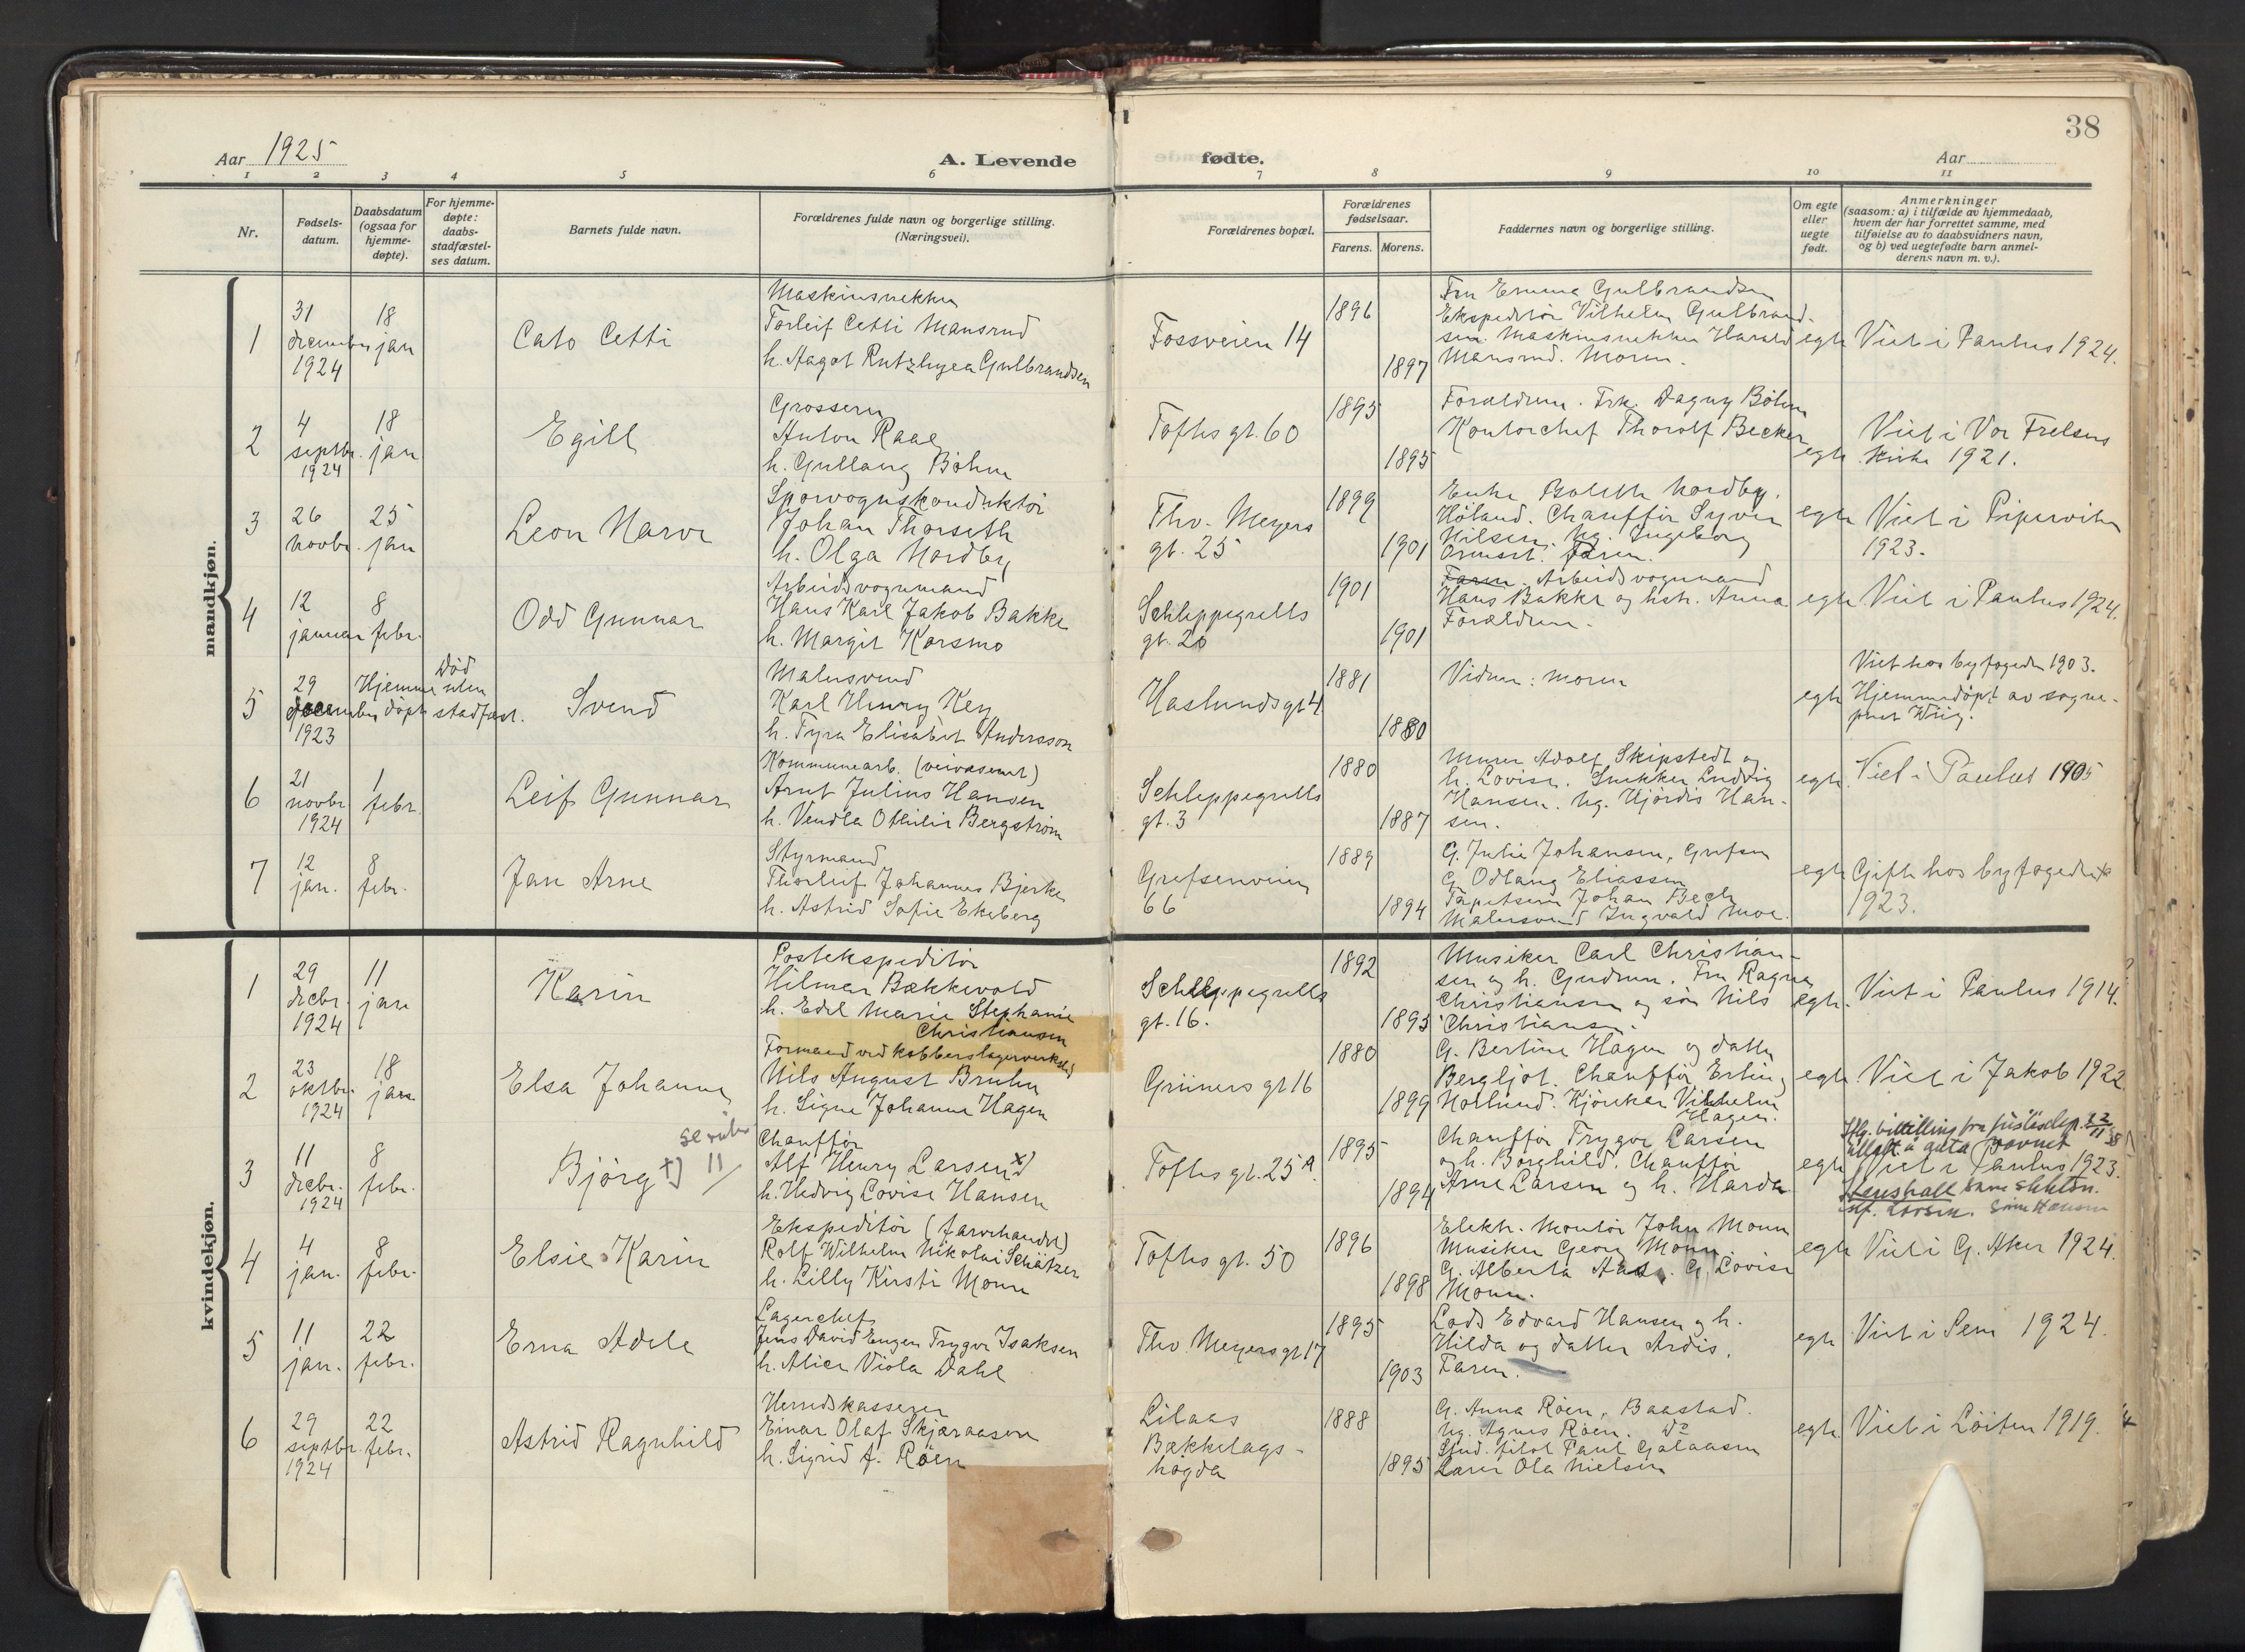 38
Aar 1925
A. Levende
fødte.
Aar
1 2 3 4 5 6 7 8 9 10 11
Nr.
Fødsels-
datum.
Daabsdatum
(ogsaa for
hjemme-
døpte).
For hjemme-
døpte:
daabs-
stadfæstel-
ses datum.
Barnets fulde navn.
Forældrenes fulde navn og borgerlige stilling.
(Næringsvei).
Forældrenes bopæl.
Forældrenes
fødselsaar.
Farens. Morens.
Faddernes navn og borgerlige stilling.
Om egte
eller
uegte
født.
Anmerkninger
(saasom: a) i tilfælde av hjemmedaab,
hvem der har forrettet samme, med
tilføielse av to daabsvidners navn,
og b) ved uegtefødte barn anmel-
derens navn m. v.).
mandkjøn.
1
31
december
1924
18
jan
Cato Cetti
Maskinsnekker
Torleif Cetti Mansrud
h. Aagot Gulbrandsen
Fossveien 14
1896
1897
Fru Emma Gulbrandsen
Ekspeditør Vilhelm Gulbrand-
sen. Maskinsnekker Harald
Mansrud. Moren.
egte
Viet i Paulus 1924.
2
4
septbr.
1924
18
jan
Egill
Grosserer
Anton Raae
h. Gullaug Böhm
Toftesgt. 60
1895
1895
Forældrene. Frk. Dagny Böhm
Kontorchef Thorolf Becker
egte
Viet i Vor Frelsers
Kirke 1921.
3
26
novbr.
25
jan
Leon Harve
Sporvognskonduktör
Johan Thorseth
h. Olga Nordby
Thv. Meyers
gt. 25
1899
1901
Enke Bolette Nordby,
Höland. Chaufför Syver
Nilsen. Ug. Ingeborg
Faren.
egte
Viet i Piperviken
1923.
4
12
januar
8
febr.
Odd Gunnar
Arbeidsvognmand
Hans Karl Jakob Bakke
h. Margit Korsmo
Schleppegrells
gt. 20
1901
1901
Faren. Arbeidsvognmand
Hans Bakke og hstr. Anna
Forældrene.
egte
Viet i Paulus 1924.
5
29
december
1923
Hjemme
döpt
Död
uten
stadfæst.
Svend
Malersvend
Karl Henry Key
h. Tyra Elisabet Andersson
Haslundsgt 4
1881
1880
Vidner: moren
egte
Viet hos byfogeden 1903.
Hjemmedöpt av sogne-
prest Wiig.
6
21
novbr
1924
1
febr.
Leif Gunnar
Kommunearb. (veivæsenet)
Arnt Julius Hansen
h. Vendla Othilie Bergström
Schleppegrells
gt. 3
1880
1887
Murer Adolf Skipstedt og
h. Lovise. Snekker Ludvig
Hansen. Ug. Hjördis Han-
sen.
egte
Viet i Paulus 1905
7
12
jan.
8
febr.
Jan Arne
Styrmand
Thorleif Johannes Bjerke
h. Astrid Sofie Ekeberg
Grefsenveien
66
1889
1894
G. Julie Johansen, Grefsen
G. Odlaug Eliassen
Tapetserer Johan Bech
Malersvend Ingvald Moe.
egte
Gift hos byfogeden
1923.
kvindekjøn.
1
29
decbr.
1924
11
jan
Karin
Postekspeditör
Hilmar Bækkevold
h. Edel Marie Stephanie
Christiansen
Schleppegrells
gt. 16.
1892
1895
Musiker Carl Christian-
sen og h. Gudrun. Fru Ragna
Christiansen og sön Nils
Christiansen.
egte.
Viet i Paulus 1914.
2
23
oktbr.
1924
18
jan
Elsa Johanne
Formand ved kobberslagerverksted
Nils August Bruhn
h. Signe Johanne Hagen
Grüners gt 16
1880
1899
G. Bertine Hagen og datter
Bergljot. Chauffør Erling
Norlund. Kjörekar Vilhelm
Hagen.
egte
Viet i Jakob 1922
3
11
decbr.
1924
8
febr.
Bjørg x) 11/
Chauffør
Alf Henry Larsen x)
h. Hedvig Lovise Hansen
Toftesgt. 25 A
1895
1894
Chauffør Trygve Larsen
og h. Borghild. Chauffør
Arne Larsen og h. Harda.
egte
Viet i Paulus 1923.
4
4
jan.
8
febr.
Elsie Karin
Ekspeditör (farvehandel)
Rolf Wilhelm Nikolai Schätzer
h. Lilly Kirsti Monn
Toftesgt. 50
1896
1898
Elektr. Montör John Monn
Musiker Georg Monn
G. Alberta Aas. G. Lovise
Monn.
egte
Viet i G. Aker 1924.
5
11
jan.
22
febr.
Erna Adele
Lagerchef
Jens David Eugen Trygve Isaksen
h. Alice Viola Dahl
Thv. Meyersgt 17
1895
1903
Lods Edvard Hansen og h.
Hilda og datter Ardis.
Faren.
egte
Viet i Sem 1924.
6
29
septbr.
1924
22
febr.
Astrid Ragnhild
Herredskasserer
Einar Olaf Skjæraasen
h. Sigrid A. Röen
Lilaas
Bækkelags-
høgda
1888
1895
G. Anna Röen, Baastad.
Ug. Agnes Röen. Do
Stud. filol Paul Galaasen
Lærer Ola Nielsen
egte
Viet i Löiten 1919.